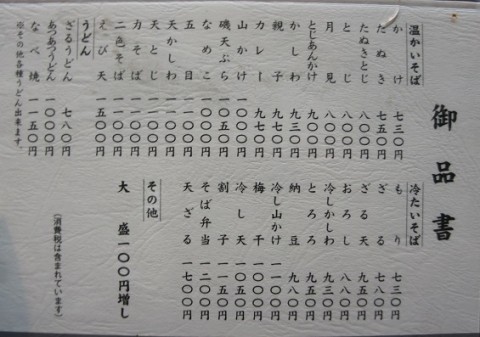 御品書
温かいそば
かけ 七三〇円
たぬき 七五〇円
たぬきとじ 八〇〇円
とじ 八〇〇円
月見 八〇〇円
とじあんかけ 九〇〇円
かしわ 九三〇円
親子 九七〇円
カレー 九七〇円
山かけ 一〇〇〇円
磯天ぷら 一〇五〇円
なめこ 一〇〇〇円
五目 一一〇〇円
天かしわ 一一〇〇円
天とじ 一一〇〇円
力そば 一〇〇〇円
二色そば 一一〇〇円
えび天 一五〇〇円
うどん
ざるうどん 七八〇円
あつあつうどん 一〇〇〇円
なべ焼 一一五〇円
※その他各種うどん出来ます。
冷たいそば
もり 七三〇円
ざる 七八〇円
ざる天 九五〇円
おろし 八八〇円
冷しかしわ 九三〇円
とろろ 九五〇円
納豆 九八〇円
冷し山かけ 一一〇〇円
梅干 一〇〇〇円
冷し天 一一〇〇円
割子 一一五〇円
そば弁当 一二〇〇円
天ざる 一七〇〇円
その他
大盛 一〇〇円増し
〔消費税は含まれています〕